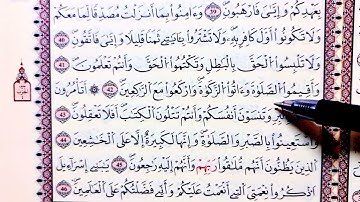 بِعَهْدِكُمْ وَإِيَّٰىَ فَٱرْهَبُونِ ٣٩ وَءَامِنُوا۟ بِمَآ أَنزَلْتُ مُصَدِّقًا لِّمَا مَعَكُمْ
وَلَا تَكُونُوٓا۟ أَوَّلَ كَافِرٍۭ بِهِۦ ۖ وَلَا تَشْتَرُوا۟ بِـَٔايَٰتِى ثَمَنًا قَلِيلًا وَإِيَّٰىَ فَٱتَّقُونِ ٤٠
وَلَا تَلْبِسُوا۟ ٱلْحَقَّ بِٱلْبَٰطِلِ وَتَكْتُمُوا۟ ٱلْحَقَّ وَأَنتُمْ تَعْلَمُونَ ٤١
وَأَقِيمُوا۟ ٱلصَّلَوٰةَ وَءَاتُوا۟ ٱلزَّكَوٰةَ وَٱرْكَعُوا۟ مَعَ ٱلرَّٰكِعِينَ ٤٢ أَتَأْمُرُونَ
بِٱلْبِرِّ وَتَنسَوْنَ أَنفُسَكُمْ وَأَنتُمْ تَتْلُونَ ٱلْكِتَٰبَ ۚ أَفَلَا تَعْقِلُونَ ٤٣
وَٱسْتَعِينُوا۟ بِٱلصَّبْرِ وَٱلصَّلَوٰةِ ۚ وَإِنَّهَا لَكَبِيرَةٌ إِلَّا عَلَى ٱلْخَٰشِعِينَ ٤٤
ٱلَّذِينَ يَظُنُّونَ أَنَّهُم مُّلَٰقُوا۟ رَبِّهِمْ وَأَنَّهُمْ إِلَيْهِ رَٰجِعُونَ ٤٥ يَٰبَنِىٓ إِسْرَٰٓءِيلَ
ٱذْكُرُوا۟ نِعْمَتِىَ ٱلَّتِىٓ أَنْعَمْتُ عَلَيْكُمْ وَأَنِّى فَضَّلْتُكُمْ عَلَى ٱلْعَٰلَمِينَ ٤٦